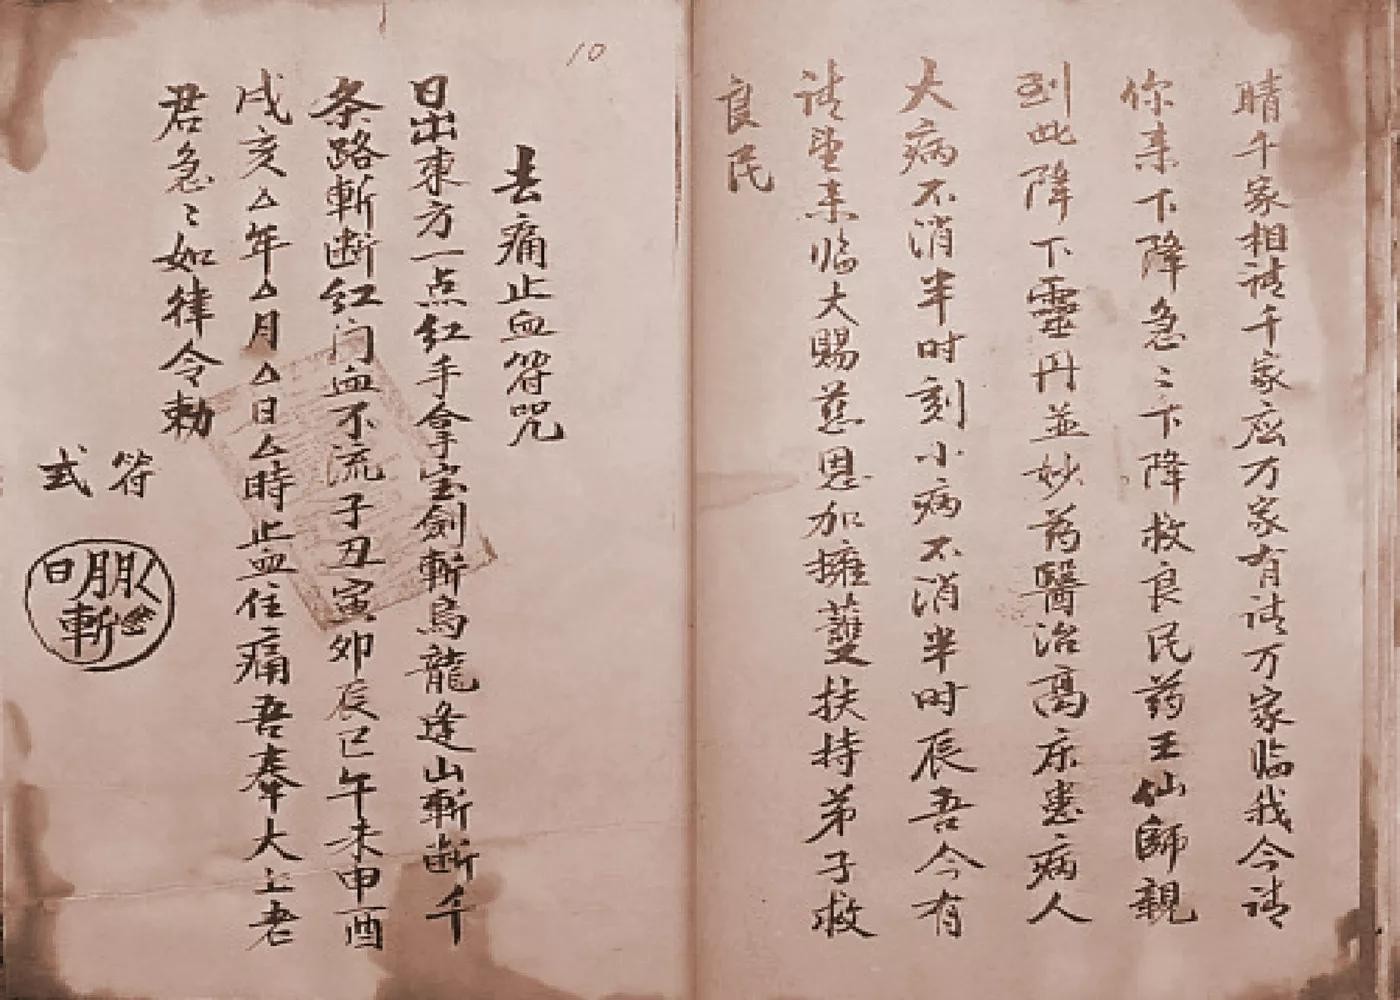 晴千家相请千家应万家有请万家临我今请
你来下降急〻下降救良民药王仙師親
到此降下靈丹並妙药醫治高床患病人
大病不消半时刻小病不消半时辰吾今有
请望来临大赐慈恩加擁護扶持弟子救
良民
10
去痛止血符咒
日出東方一点红手拿宝劍斬烏龍逢山斬断千
条路斬断红门血不流子丑寅卯辰巳午未申酉
戌亥△年△月△日△時止血住痛吾奉大上老
君急〻如律令勅
符式
日月
斬